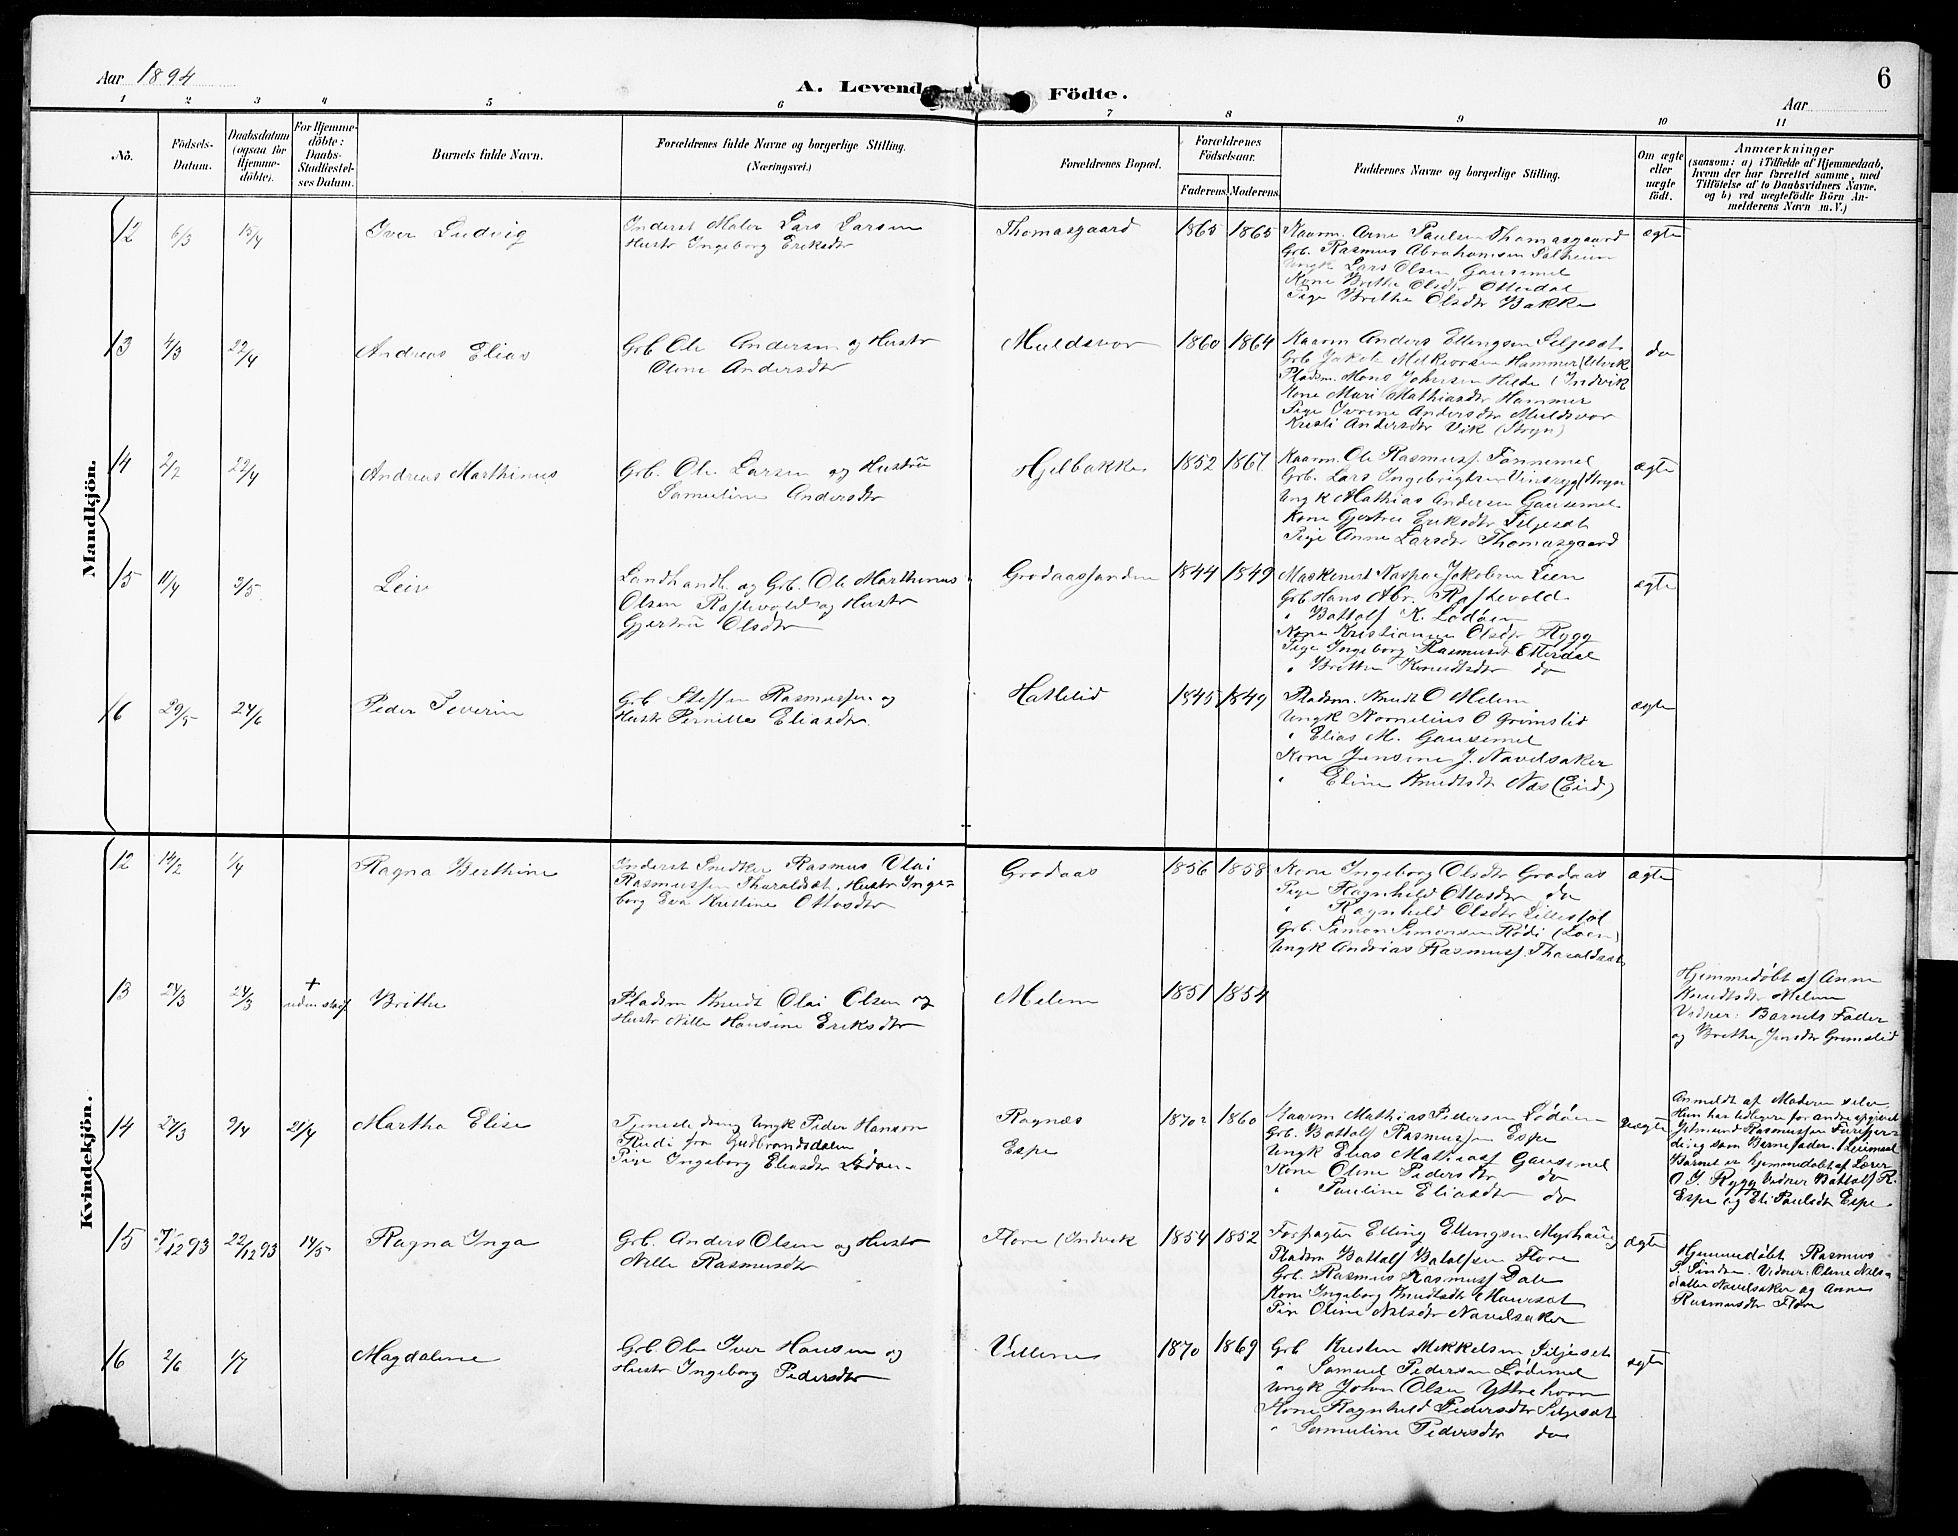 Aar 1894
A. Levend Födte.
6
Aar
1 2 3 4 5 6 7 8 9 10 11
Nö.
Födsels-
Datum.
Daabsdatum
(ogsaa for
Hjemme-
döbte).
For Hjemme-
döbte:
Daabs-
Stadfæstel-
ses Datum.
Barnets fulde Navn.
Forældrenes fulde Navne og borgerlige Stilling.
(Næringsvei.)
Forældrenes Bopæl.
Forældrenes
Födselsaar.
Faderens. Moderens.
Faddernes Navne og borgerlige Stilling.
Om ægte
eller
uægte
födt.
Anmærkninger
(saasom: a) i Tilfælde af Hjemmedaab,
hvem der har forrettet samme, med
Tilföielse af to Daabsvidners Navne.
og b) ved uægtefödte Börn An-
melderens Navn m. V.)
Mandkjön.
12 6/3 15/4 Iver Ludvig
Inderst Maler Lars Larsen
Hustr Ingeborg Eriksdtr
Thomasgaard 1865 1865
Kaarm. Arne Paulsen Thomasgaard
Grb. Rasmus Abrahamsen Solheim
Ungk Lars Olsen Gausemel
Kone Brithe Olsdtr Otterdal
Pige Brithe Olsdtr Bakke
ægte
13 4/3 22/4 Andreas Elias
Grb Ole Andersen og Hustr
Oline Andersdtr
Muldsvor 1860 1864
Kaarm Anders Ellingsen Siljesæt
Grb Jakob Melkiorsen Hammer (Utvik
Pladsm. Mons Johnsen Hilde (Indvik
Kone Mari Mathiasdtr Hammer
Pige Ivrine Andersdtr Muldsvor
Kristi Andersdtr Vik (Stryn)
do
14 2/2 22/4 Andreas Marthinus
Grb. Ole Larsen og Hustru
Samuline Andersdtr
Hjelbakke 1852 1867
Kaarm. Ole Rasmuss. Tonnemel
Grb. Lars Ingebrigtsen Vinsryg (Stryn
Ungk Mathias Andersen Gausemel
Kone Gjertru Eriksdtr Siljesæt
Pige Anne Larsdtr Thomasgaard
ægte
15 11/4 3/5 Leiv
Landhandl. og Grb. Ole Marthinus
Olsen Raftevold og Hustr
Gjertru Olsdtr
Grodaassanden 1844 1849
Maskenist Kaspar Jakobsen Lien
Grb Hans Abr. Raftevold
" Battolf R. Lødøen
Kone Kristianne Olsdtr Rygg
Pige Ingeborg Rasmusdt Otterdal
" Brithe Knudtsdtr do
ægte
16 29/5 24/6 Peder Severin
Grb Steffen Rasmussen og
Hustr Pernille Eliasdtr.
Hatlelid 1845 1849
Pladsm. Knudt O Melem
Ungk Kornelius O Grimslid
" Elias M. Gausemel
Kone Jensine J. Navelsaker
" Eline Knudtsdtr Nos (Eid)
ægte
Kvindekjön.
12 14/2 1/4 Ragna Berthine
Inderst Snedker Rasmus Olai
Rasmussen Tharaldsæt. Hustr Inge=
borg Eva Kristine Ottosdtr
Grodaas 1856 1858
Kone Ingeborg Olsdtr Grodaas
Pige Ragnhild Ottosdtr do
" Ragnhild Olsdtr Lillestøl
Grb. Simon Simonsen Rødi (Loen)
Ungk Andrias Rasmuss. Tharaldsæt
ægte
13 24/3 24/3 + uden stadf. Brithe
Pladsm Knudt Olai Olsen og
Hustr Nille Hansine Eriksdtr
Melem 1851 1854
Hjemmedøbt af Anne
Knudtsdtr Melem
Vidner: Barnets Fader
og Brithe Jensdtr Grimslid
14 24/3 9/4 21/4 Martha Elise
Tjenestedreng Ungk Peder Hanson
Rudi fra Gudbrandsdalen
Pige Ingeborg Eliasdtr Lødøen
Ragnæs
Espe
1870? 1860
Kaarm Mathias Pedersen Lødøen
Grb. Battolf Rasmussen Espe
Ungk Elias Mathiass Gausemel
Kone Oline Pedersdtr do
" Pauline Eliasdtr do
uægte
Anmeldt af Moderen selv.
Hun har tidligere for andre opgivet
Rasmussen
som Barnefader.
Barnet er hjemmedøbt af Lærer
O. J. Rygg Vidner Battolf R.
Espe og Eli Paulsdtr Espe
15 7/12 93 22/12 93 14/5 Ragna Inga
Grb. Anders Olsen og Hustr
Nille Rasmusdtr
Flore (Indvik 1854 1852
Forpagter Elling Ellingsen Myrhaug
Pladsm Battolf Batolfsen Flore
Grb. Rasmus Rasmuss Dale
Kone Ingeborg Knudtsdtr Maursæt
Pige Oline Nilsdtr Navelsaker
ægte
Hjemmedøbt Rasmus
S. Sindre. Vidner: Oline Nils-
datter Navelsaker og Anne
Rasmusdtr Flore
16 2/6 1/7 Magdalene
Grb Ole Iver Hansen og
Hustr Ingeborg Pedersdtr
Villenes 1870 1869
Grb Kristen Mikkelsen Siljesæt
" Samuel Pedersen Lødemel
Ungk John Olsen Yttrehorn
Kone Ragnhild Pedersdtr Siljesæt
" Samuline Pedersdtr do
ægte